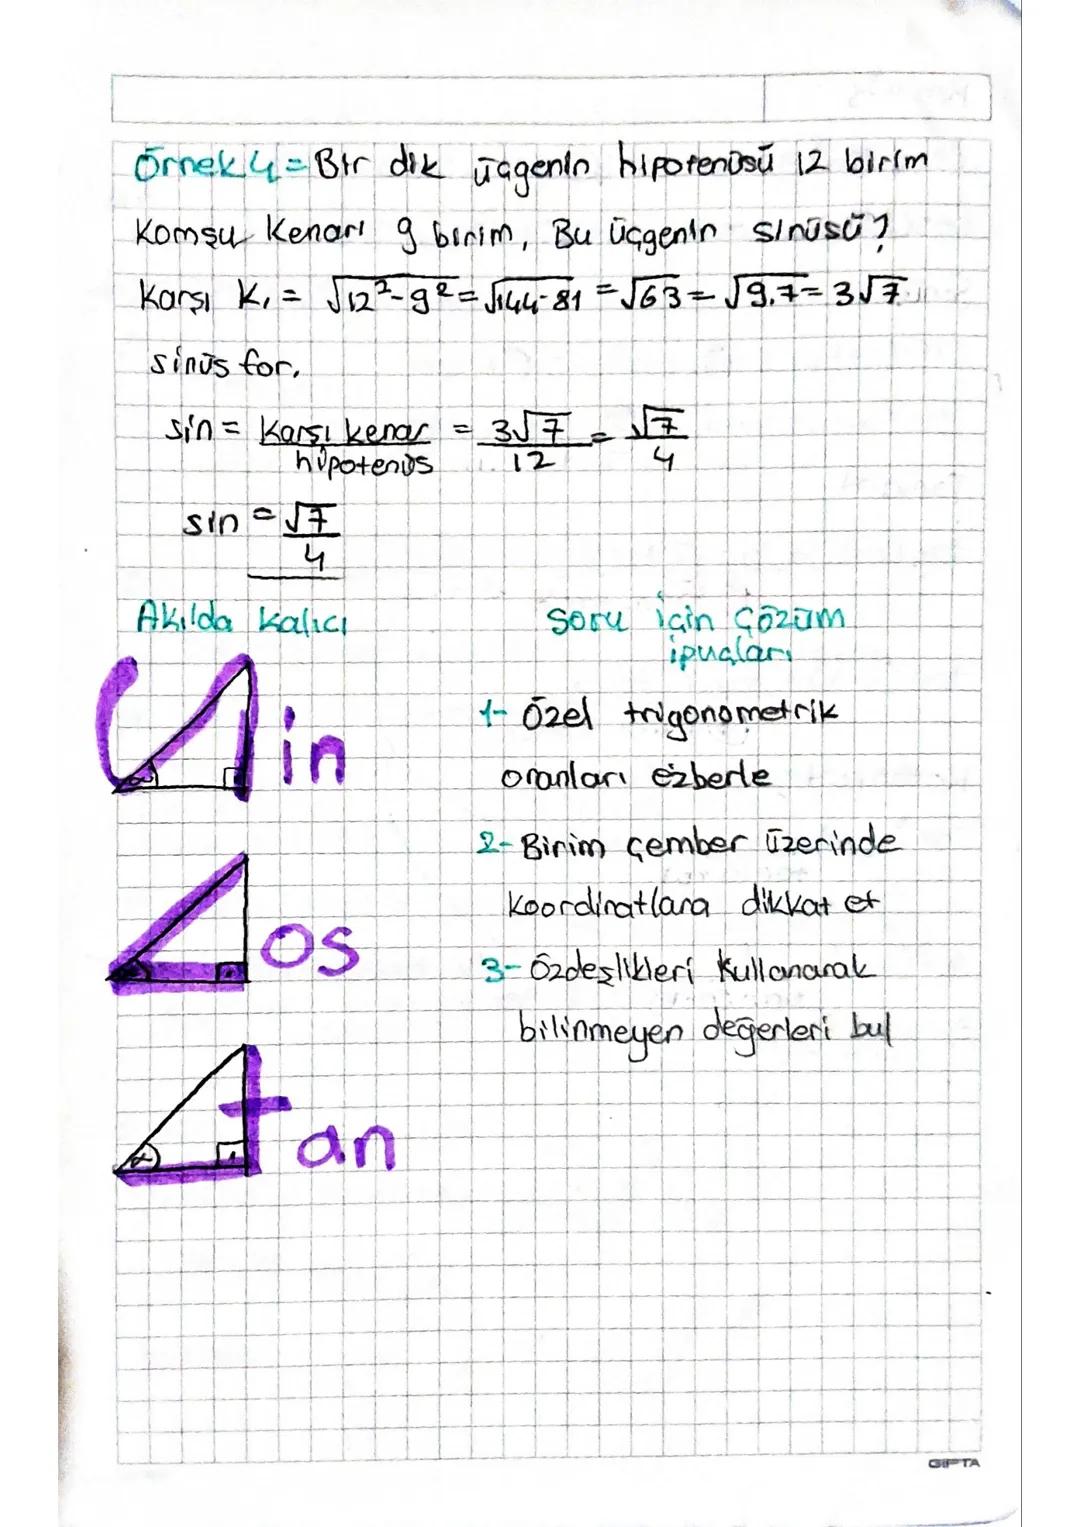 Örnek 4 = Bir dik üçgenin hipotenüsü 12 birim
Komşu Kenarı 9 birim, Bu üçgenin sinüsü?
Karşı K. = √12²-9² = √144-81 = √63 = √9.7 = 3√7
sinüs for.
sin = Karşı kenar / hipotenüs = 3√7 / 12 = √7 / 4
sin = √7 / 4
Akılda Kalıcı
Sin
Cos
tan
α
α
α
Soru için Çözüm
ipuçları
1- Özel trigonometrik
oranları ezberle
2- Birim çember üzerinde
koordinatlara dikkat et
3- Özdeşlikleri kullanarak
bilinmeyen değerleri bul
GIPTA